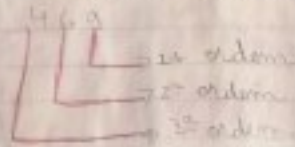 4 6 9
1ª ordem
2ª ordem
3ª ordem